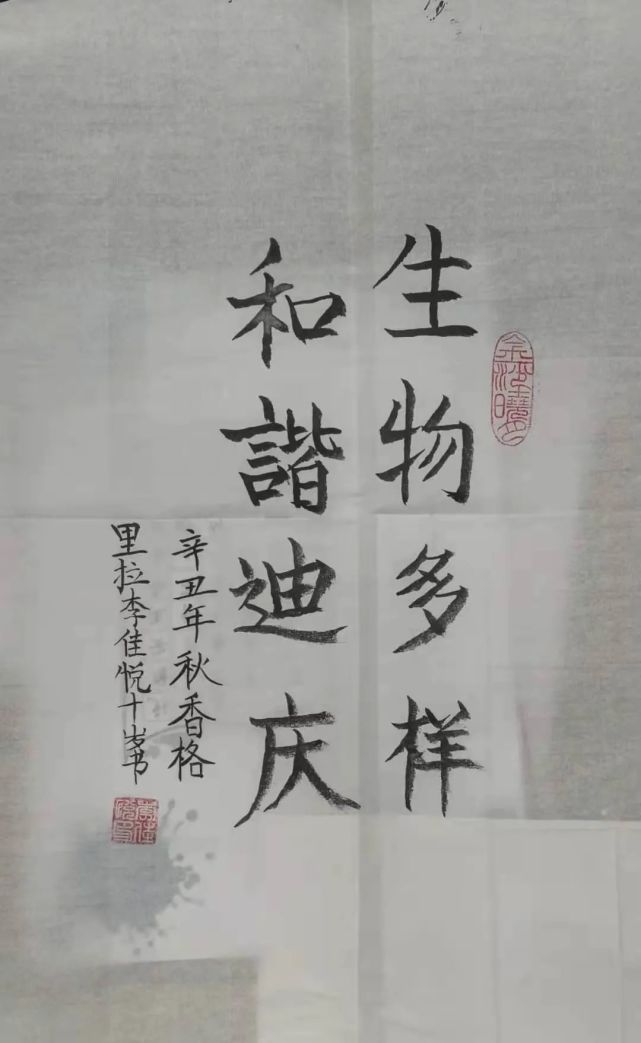 生物多样
和諧迪庆
辛丑年秋香格
里拉李佳悦十岁书